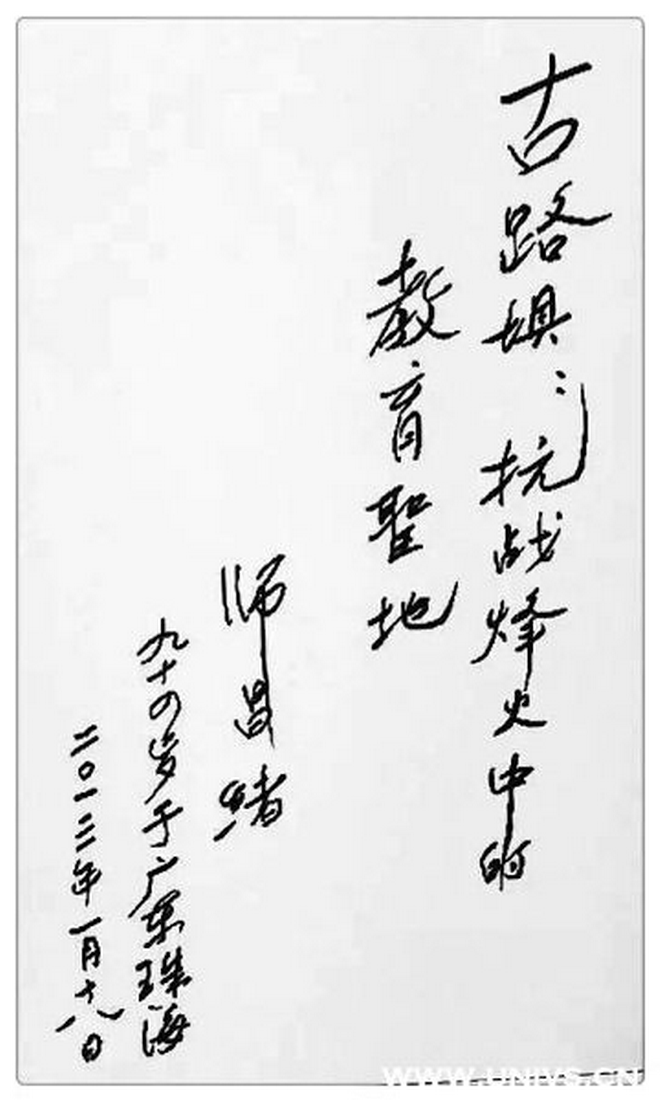 古路埧：抗战烽火中的
教育聖地
师昌绪
九十四岁于广东珠海
二〇一三年一月十八日
WWW.UNIVS.CN